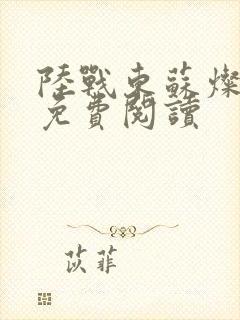 陸戰東蘇燦
免費閱讀
苡菲